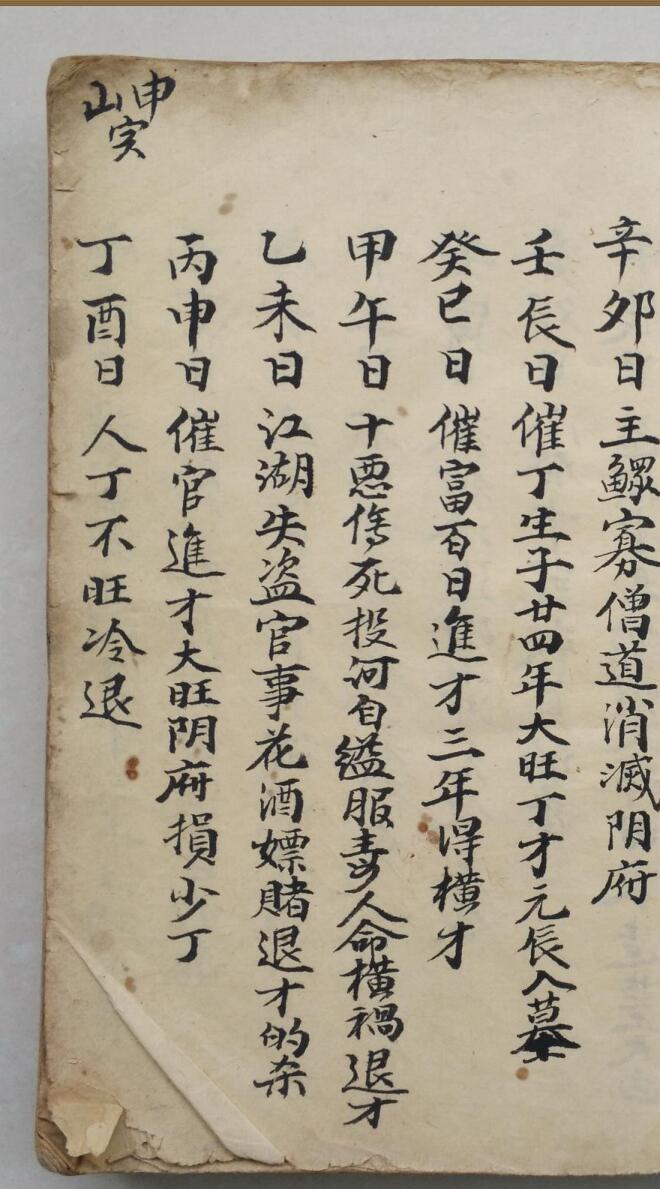 辛夘日主鰥寡僧道消滅阴府
壬辰日催丁生子廿四年大旺丁才元辰入墓
癸巳日催富百日進才三年得横才
甲午日十恶傷死投河自缢服毒人命横禍退才
乙未日江湖失盗官事花酒嫖賭退才的杀
丙申日催官進才大旺阴府損少丁
丁酉日人丁不旺冷退
申山